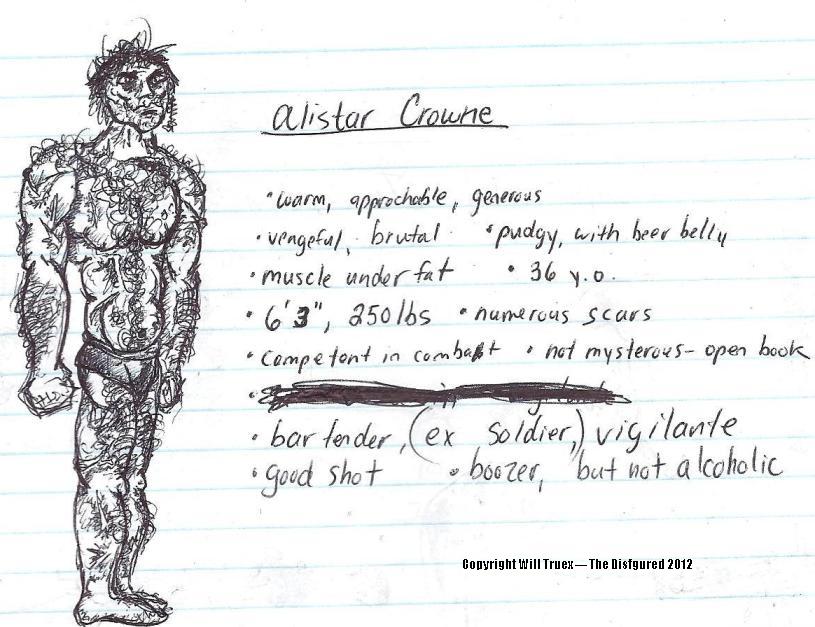 alistar Crowne
• warm, approchable, generous
• vengeful, brutal • pudgy, with beer belly
• muscle under fat • 36 y.o.
• 6'3", 250 lbs • numerous scars
• competent in combat • not mysterous - open book
• bartender, (ex soldier,) vigilante
• good shot • boozer, but not alcoholic
Copyright Will Truex — The Disfgured 2012